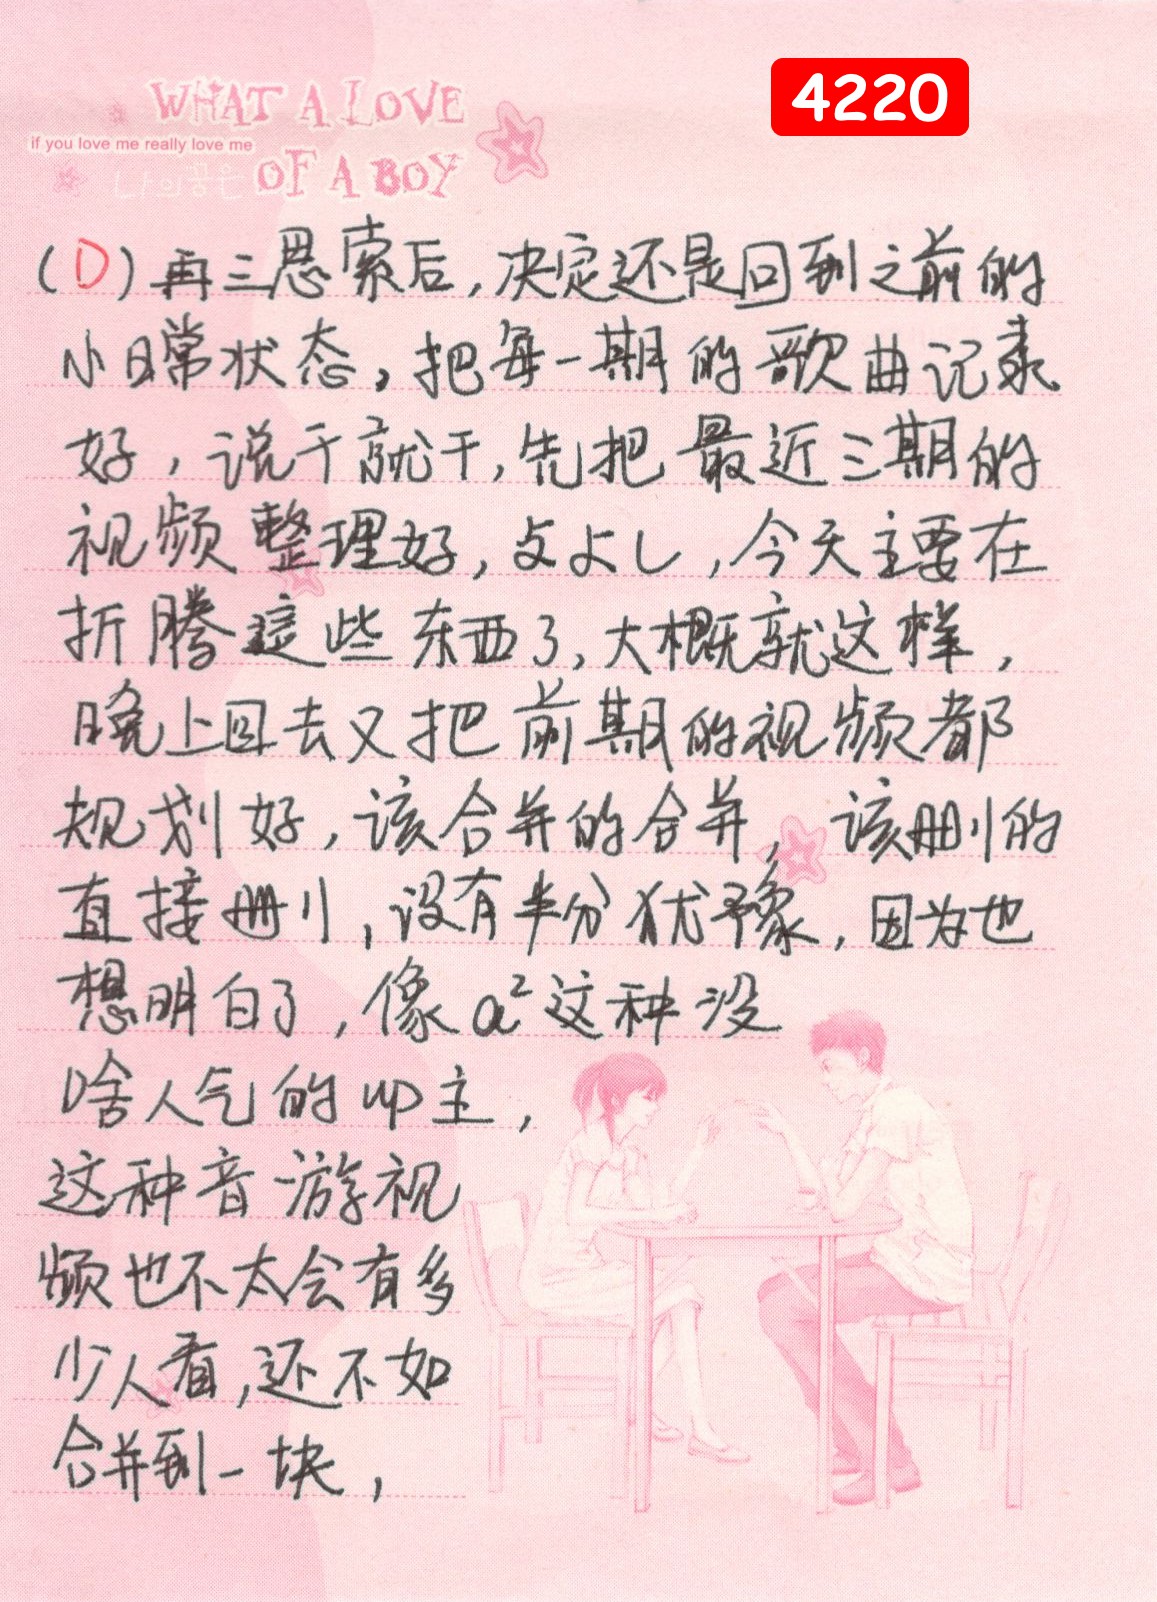 4220
WHAT A LOVE
if you love me really love me
나의꿈은 OF A BOY
(D)再三思索后,决定还是回到之前的
小日常状态,把每一期的歌曲记录
好,说干就干,先把最近三期的
视频整理好,よし,今天主要在
折腾这些东西了,大概就这样,
晚上回去又把前期的视频都
规划好,该合并的合并,该删的
直接删,没有半分犹豫,因为也
想明白了,像a²这种没
啥人气的up主,
这种音游视
频也不太会有多
少人看,还不如
合并到一块,